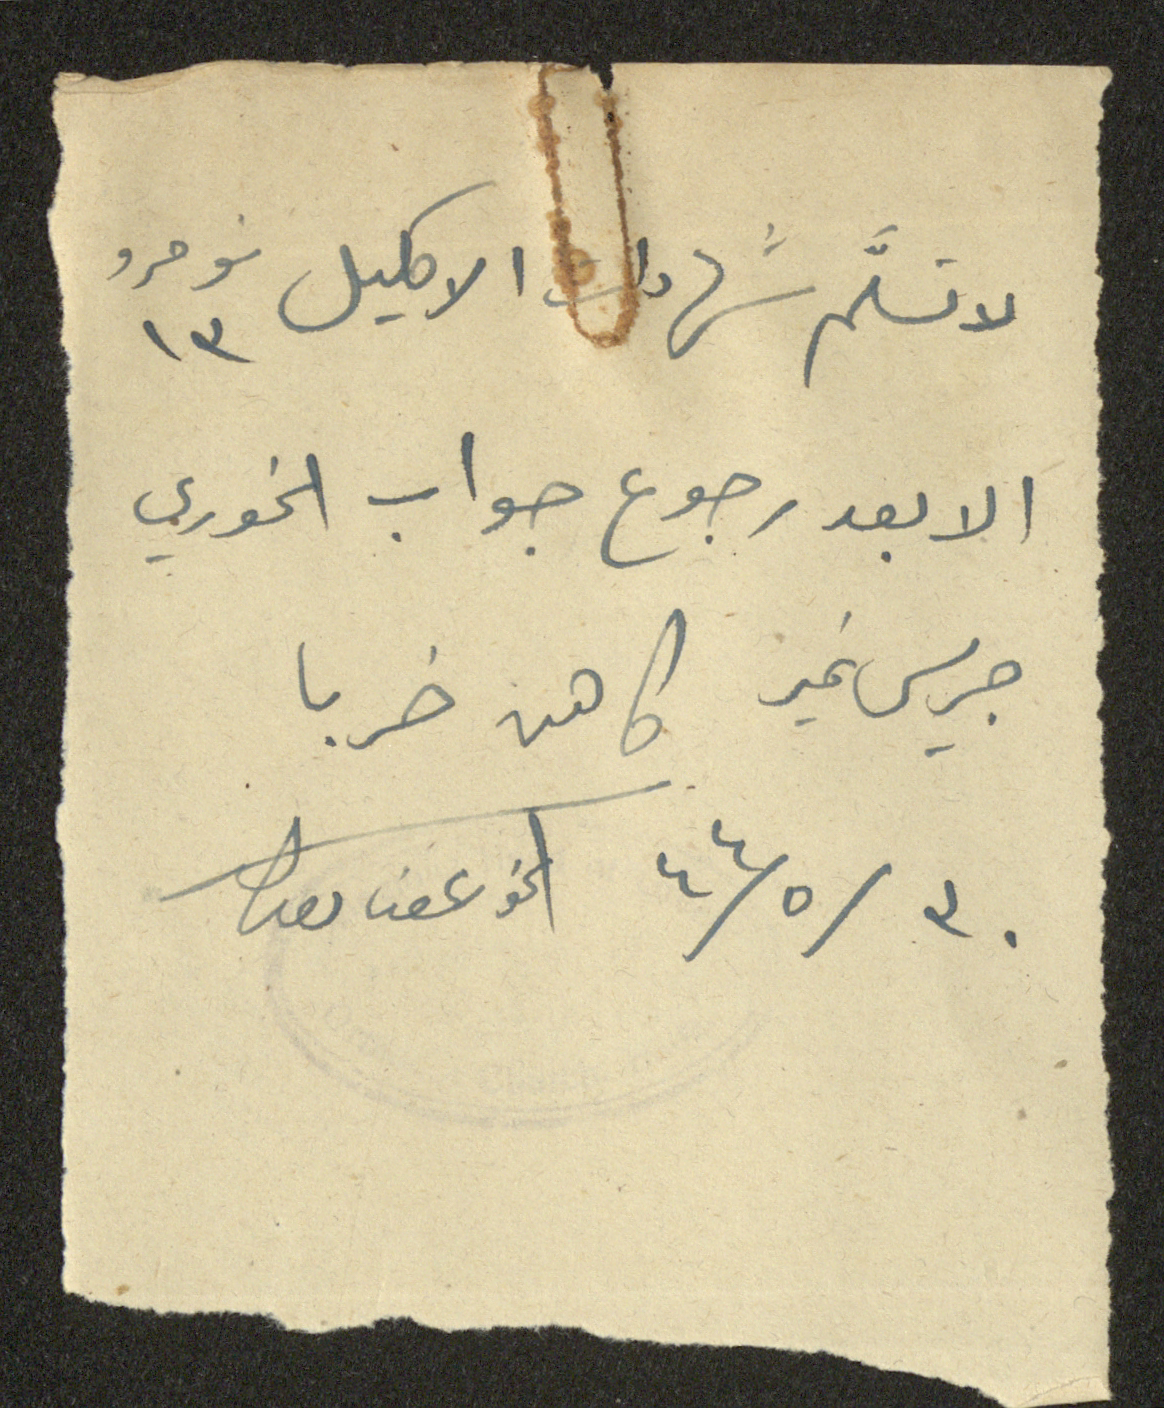 لا تسلَّم شهادات الاكليل نومرو ١٣
الا بعد رجوع جواب الخوري
جريس نمير كاهن خربا
٣٠/٥/٤٤ الخو